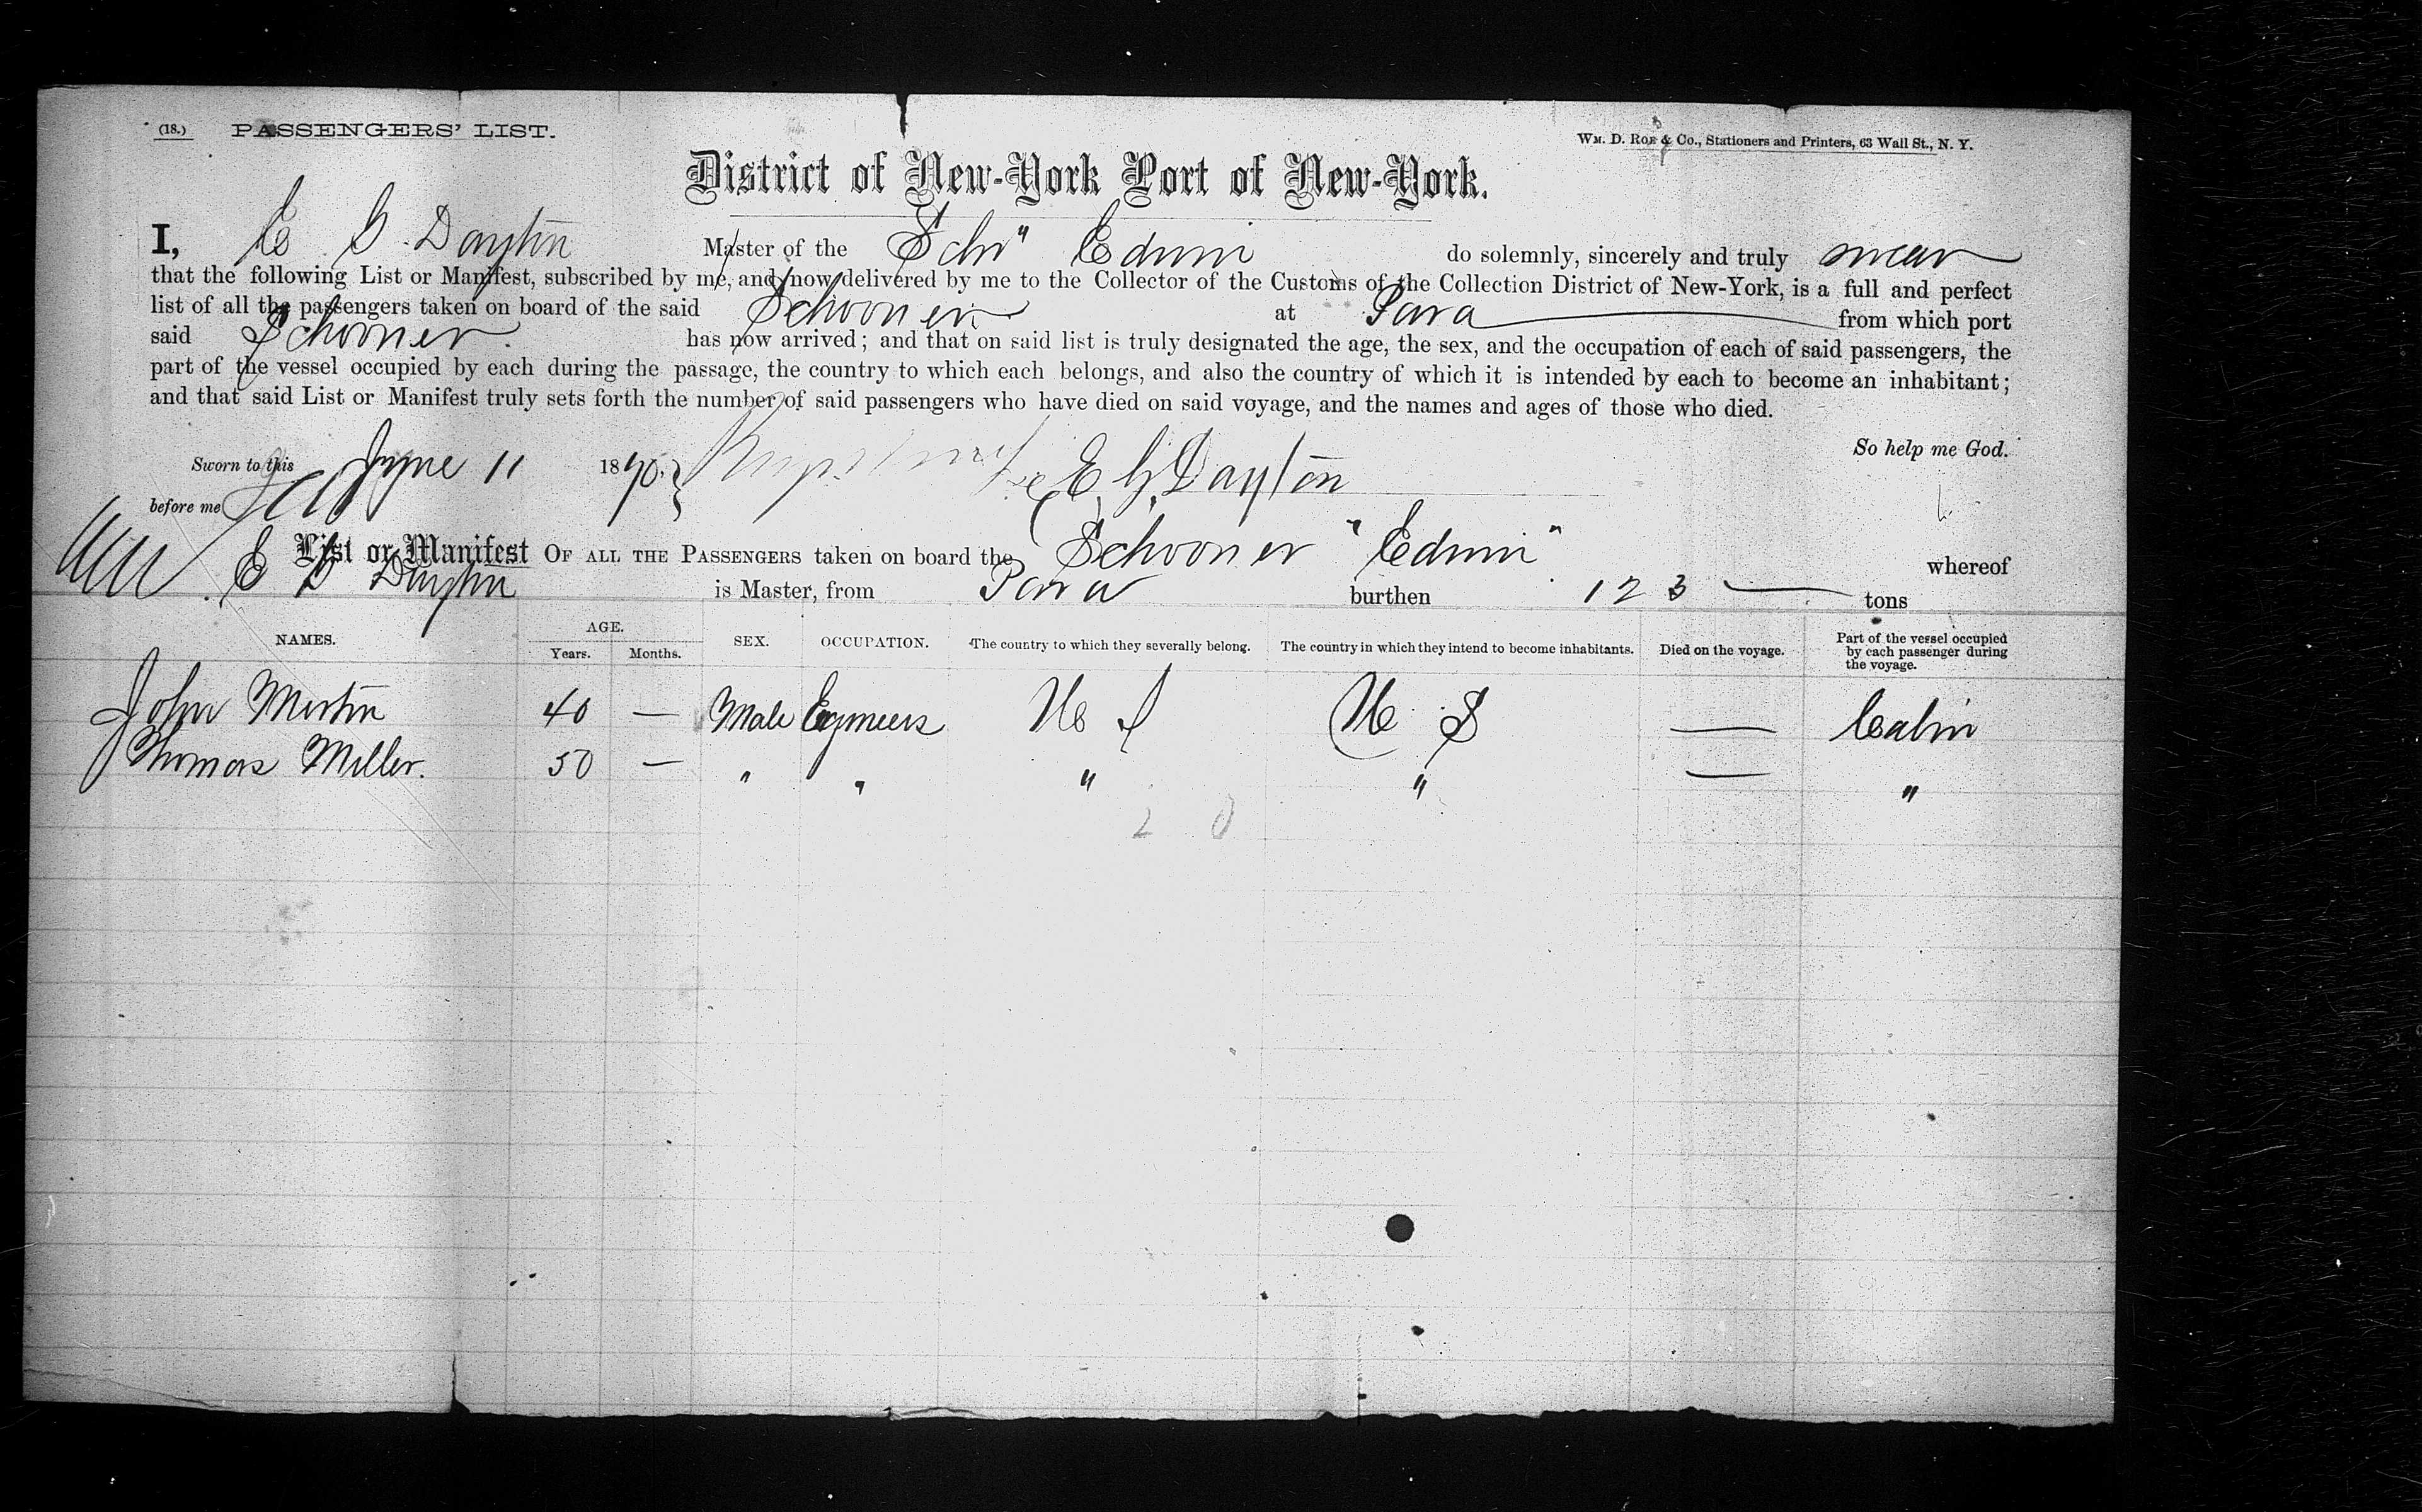 (18.) PASSENGERS' LIST.
WM. D. ROE & CO., Stationers and Printers, 63 Wall St., N. Y.
District of New-York Port of New-York.
I, E G Dayton Master of the Schr "Edwin do solemnly, sincerely and truly swear
that the following List or Manifest, subscribed by me, and now delivered by me to the Collector of the Customs of the Collection District of New-York, is a full and perfect
list of all the passengers taken on board of the said Schooner at Para from which port
said Schooner has now arrived; and that on said list is truly designated the age, the sex, and the occupation of each of said passengers, the
part of the vessel occupied by each during the passage, the country to which each belongs, and also the country of which it is intended by each to become an inhabitant;
and that said List or Manifest truly sets forth the number of said passengers who have died on said voyage, and the names and ages of those who died.
So help me God.
Sworn to this June 11 1890. E G Dayton
before me
List or Manifest OF ALL THE PASSENGERS taken on board the Schooner "Edwin" whereof
E G Dayton is Master, from Para burthen 123 tons
NAMES. AGE. Years. Months. SEX. OCCUPATION. The country to which they severally belong. The country in which they intend to become inhabitants. Died on the voyage. Part of the vessel occupied by each passenger during the voyage.
John Martin 40 — Male Egineers U S U S — Cabin
Thomas Miller. 50 — " " " " — "
2 0